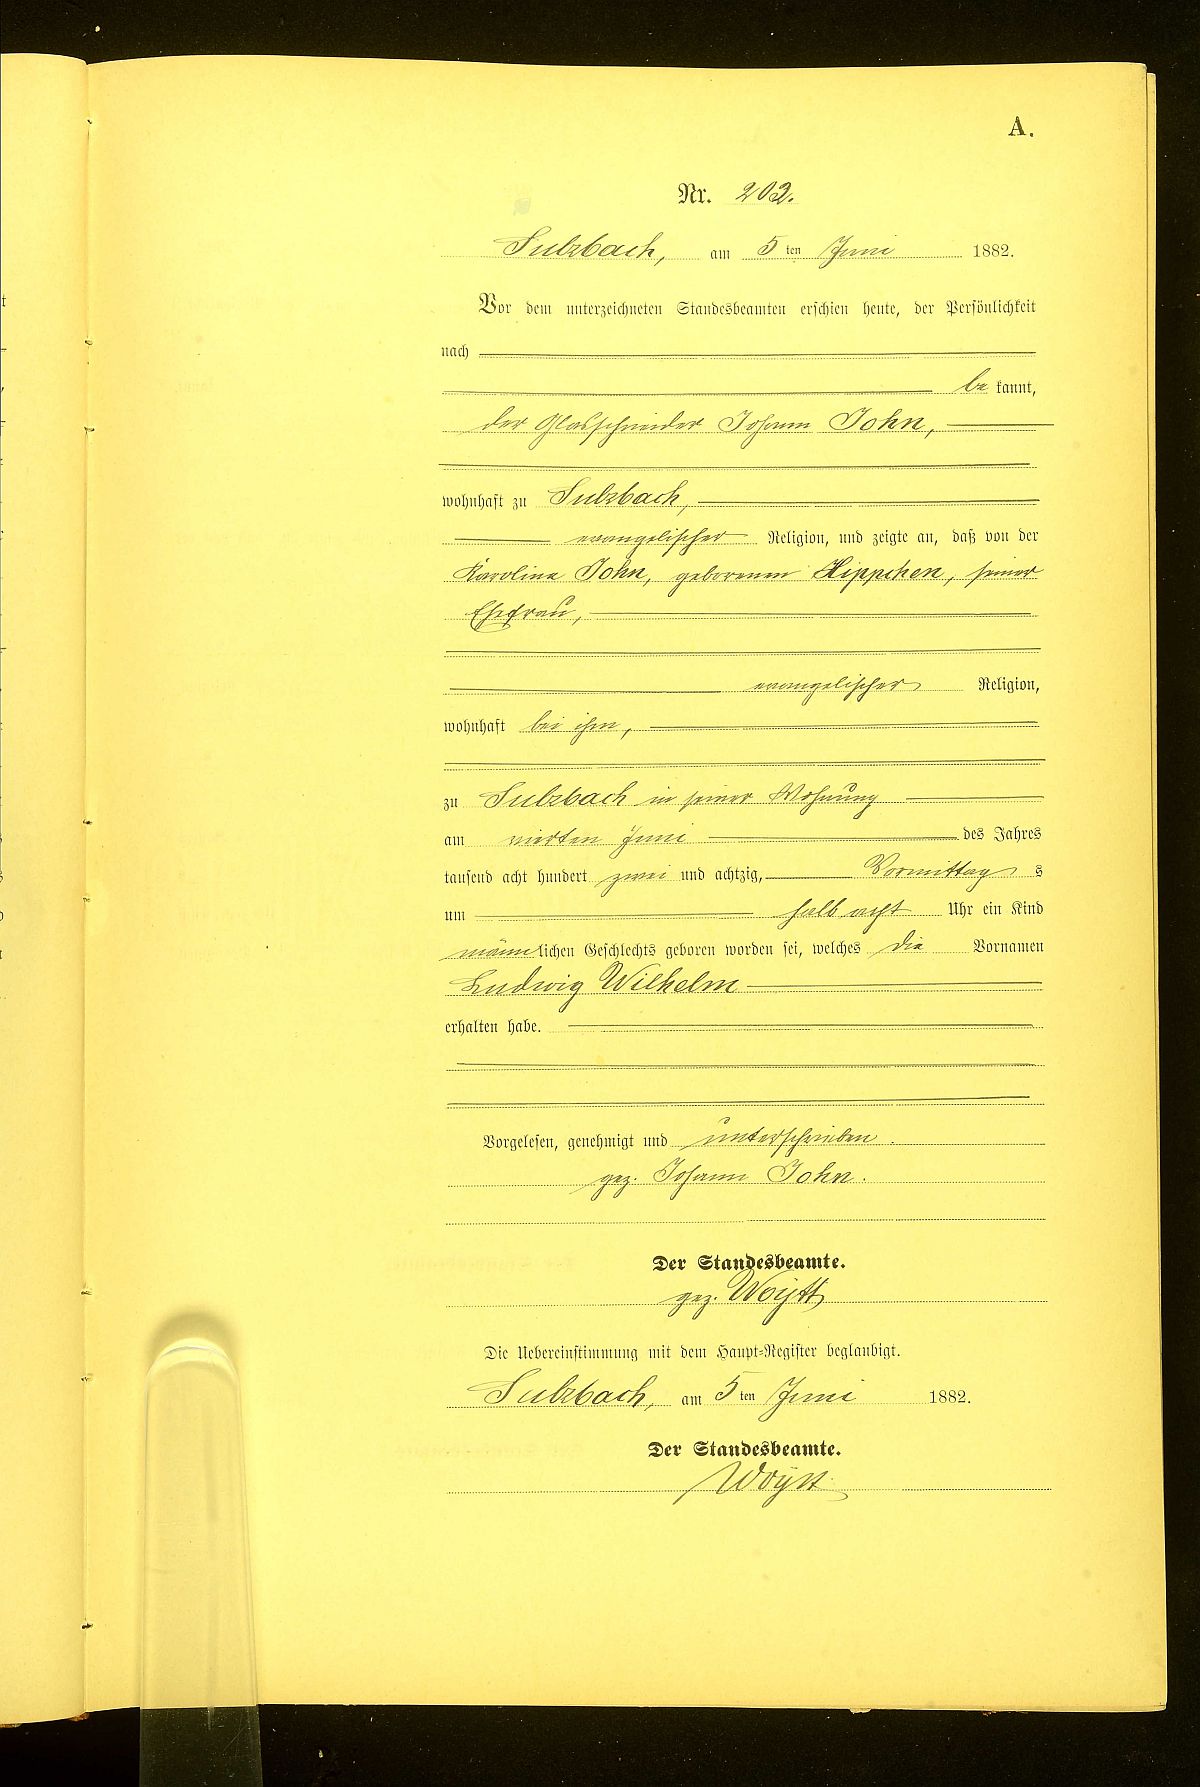 A.
Nr. 202.
Sulzbach, am 5ten Juni 1882.
Vor dem unterzeichneten Standesbeamten erschien heute, der Persönlichkeit
nach
bekannt,
der Glasschneider Johann John,
wohnhaft zu Sulzbach,
evangelischer Religion, und zeigte an, daß von der
Karolina John, geborenen Hippchen, seiner
Ehefrau,
evangelischer Religion,
wohnhaft bei ihm,
zu Sulzbach in seiner Wohnung
am vierten Juni des Jahres
tausend acht hundert zwei und achtzig, Vormittags
um halb acht Uhr ein Kind
männlichen Geschlechts geboren worden sei, welches die Vornamen
Ludwig Wilhelm
erhalten habe.
Vorgelesen, genehmigt und unterschrieben.
gez. Johann John.
Der Standesbeamte.
gez. Woytt
Die Uebereinstimmung mit dem Haupt-Register beglaubigt.
Sulzbach, am 5ten Juni 1882.
Der Standesbeamte.
Woytt